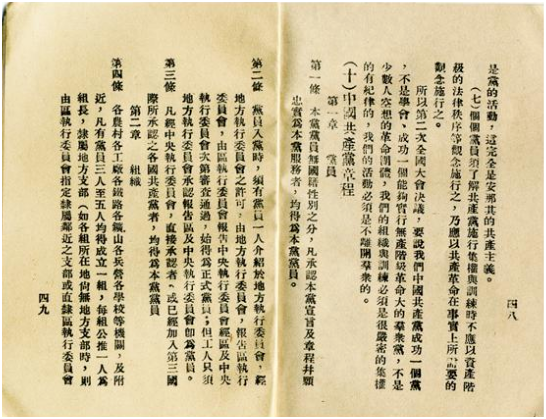 四八
是黨的活動，這完全是安那其的共產主義。
（七）個個黨員須了解共產黨施行集權與訓練時不應以資產階
級的法律秩序等觀念施行之，乃應以共產革命在事實上所需要的
觀念施行之。
所以第二次全國大會決議，要說我們中國共產黨成功一個黨
，不是學會，成功一個能夠實行無產階級革命大的羣衆黨，不是
少數人空想的革命團體，我們的組織與訓練必須是很嚴密的集權
的有紀律的，我們的活動必須是不離開羣衆的。
（十）中國共產黨章程
第一章　黨員
第一條　本黨黨員無國籍性別之分，凡承認本黨宣言及章程幷願
忠實爲本黨服務者，均得爲本黨黨員。
第二條　黨員入黨時，須有黨員一人介紹於地方執行委員會，經
地方執行委員會之許可，由地方執行委員會，報告區執行
委員會，由區執行委員會報告中央執行委員會經區及中央
執行委員會次第審查通過，始得爲正式黨員；但工人只須
地方執行委員會承認報告區及中央執行委員會卽爲黨員。
第三條　凡經中央執行委員會，直接承認者，或已經加入第三國
際所承認之各國共產黨者，均得爲本黨黨員
第二章　組織
第四條　各農村各工廠各鐵路各礦山各兵營各學校等機關，及附
近，凡有黨員三人至五人均得成立一組，每組公推一人爲
組長，隸屬地方支部（如各組所在地尙無地方支部時，則
由區執行委員會指定隸屬鄰近之支部或直隸區執行委員會
四九